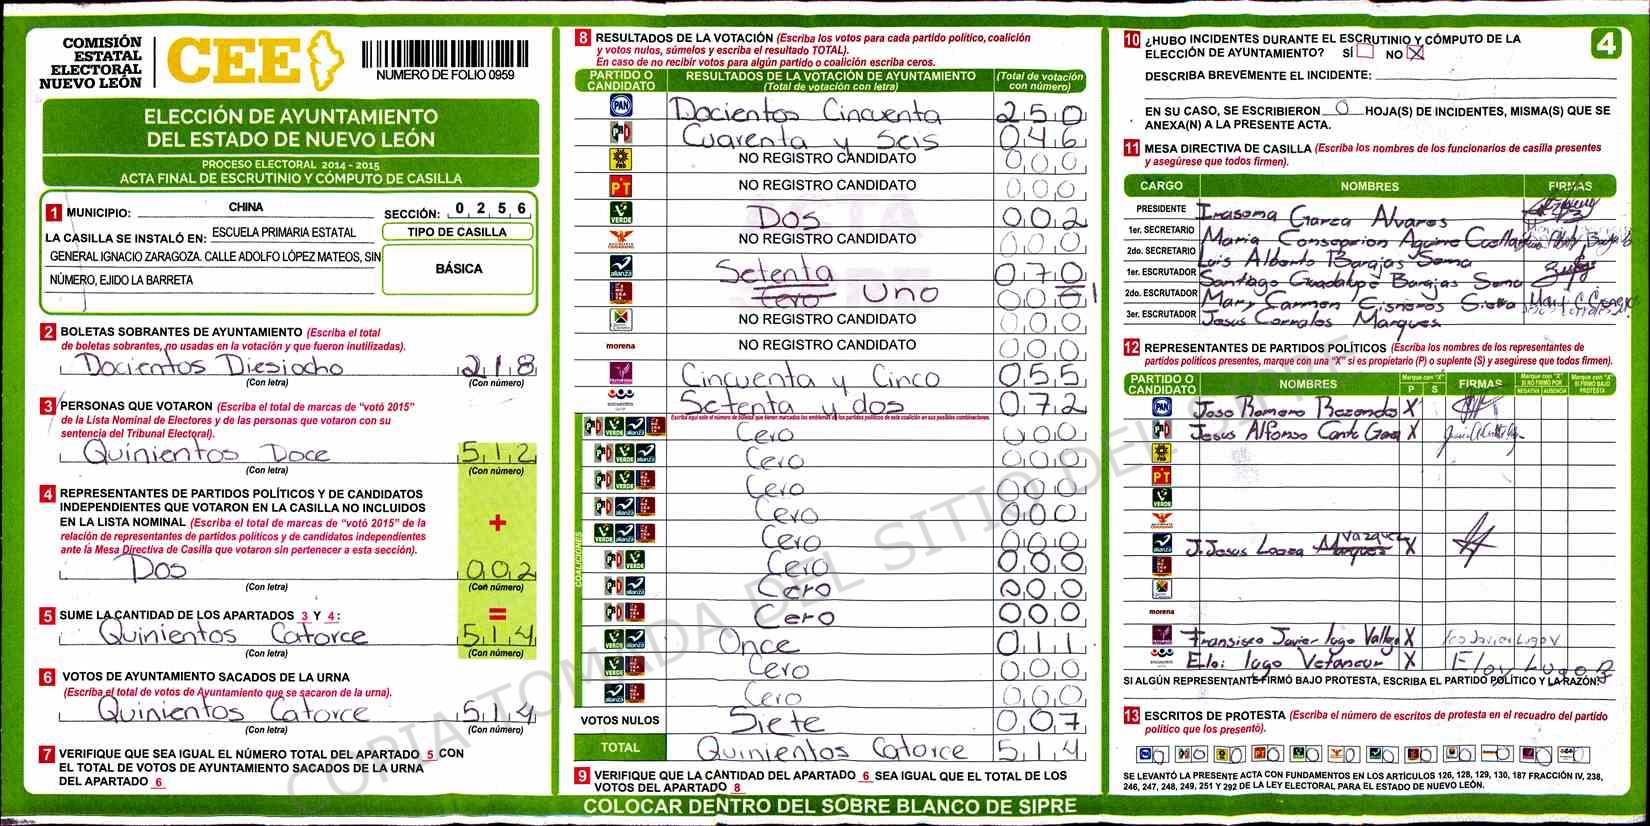 COMISIÓN
ESTATAL
ELECTORAL
NUEVO LEÓN
CEE
NUMERO DE FOLIO 0959
ELECCIÓN DE AYUNTAMIENTO
DEL ESTADO DE NUEVO LEÓN
PROCESO ELECTORAL 2014 - 2015
ACTA FINAL DE ESCRUTINIO Y CÓMPUTO DE CASILLA
1 MUNICIPIO: CHINA SECCIÓN: 0 2 5 6
LA CASILLA SE INSTALÓ EN: ESCUELA PRIMARIA ESTATAL
GENERAL IGNACIO ZARAGOZA. CALLE ADOLFO LÓPEZ MATEOS, SIN
NÚMERO, EJIDO LA BARRETA
TIPO DE CASILLA
BÁSICA
2 BOLETAS SOBRANTES DE AYUNTAMIENTO (Escriba el total
de boletas sobrantes, no usadas en la votación y que fueron inutilizadas).
Docientos Diesiocho 218
(Con letra) (Con número)
3 PERSONAS QUE VOTARON (Escriba el total de marcas de "votó 2015"
de la Lista Nominal de Electores y de las personas que votaron con su
sentencia del Tribunal Electoral).
Quinientos Doce 512
(Con letra) (Con número)
4 REPRESENTANTES DE PARTIDOS POLÍTICOS Y DE CANDIDATOS
INDEPENDIENTES QUE VOTARON EN LA CASILLA NO INCLUIDOS
EN LA LISTA NOMINAL (Escriba el total de marcas de "votó 2015" de la
relación de representantes de partidos políticos y de candidatos independientes
ante la Mesa Directiva de Casilla que votaron sin pertenecer a esta sección).
+
Dos 002
(Con letra) (Con número)
=
5 SUME LA CANTIDAD DE LOS APARTADOS 3 Y 4:
Quinientos Catorce 514
(Con letra) (Con número)
6 VOTOS DE AYUNTAMIENTO SACADOS DE LA URNA
(Escriba el total de votos de Ayuntamiento que se sacaron de la urna).
Quinientos Catorce 514
(Con letra) (Con número)
7 VERIFIQUE QUE SEA IGUAL EL NÚMERO TOTAL DEL APARTADO 5 CON
EL TOTAL DE VOTOS DE AYUNTAMIENTO SACADOS DE LA URNA
DEL APARTADO 6
8 RESULTADOS DE LA VOTACIÓN (Escriba los votos para cada partido político, coalición
y votos nulos, súmelos y escriba el resultado TOTAL).
En caso de no recibir votos para algún partido o coalición escriba ceros.
PARTIDO O CANDIDATO RESULTADOS DE LA VOTACIÓN DE AYUNTAMIENTO (Total de votación con letra) (Total de votación con número)
PAN Docientos Cincuenta 250
PRD Cuarenta y Seis 046
PRD NO REGISTRO CANDIDATO 000
PT NO REGISTRO CANDIDATO 000
VERDE Dos 002
NO REGISTRO CANDIDATO 000
alianza Setenta 070
Cero Uno 0001
NO REGISTRO CANDIDATO 000
morena NO REGISTRO CANDIDATO 000
Cincuenta y Cinco 055
Setenta y dos 072
Escriba aquí solo el número de boletas que tienen marcados los emblemas de los partidos políticos de esta coalición en sus posibles combinaciones.
COALICIONES
Cero 000
Cero 000
Cero 000
Cero 000
Cero 000
Cero 000
Cero 000
Cero 000
Once 011
Cero 000
Cero 000
VOTOS NULOS Siete 007
TOTAL Quinientos Catorce 514
9 VERIFIQUE QUE LA CANTIDAD DEL APARTADO 6 SEA IGUAL QUE EL TOTAL DE LOS
VOTOS DEL APARTADO 8
COLOCAR DENTRO DEL SOBRE BLANCO DE SIPRE
4
10 ¿HUBO INCIDENTES DURANTE EL ESCRUTINIO Y CÓMPUTO DE LA
ELECCIÓN DE AYUNTAMIENTO? SÍ NO X
DESCRIBA BREVEMENTE EL INCIDENTE:
EN SU CASO, SE ESCRIBIERON 0 HOJA(S) DE INCIDENTES, MISMA(S) QUE SE
ANEXA(N) A LA PRESENTE ACTA.
11 MESA DIRECTIVA DE CASILLA (Escriba los nombres de los funcionarios de casilla presentes
y asegúrese que todos firmen).
CARGO NOMBRES FIRMAS
PRESIDENTE Irasema Garza Alvares
1er. SECRETARIO Maria Consepcion Aguirre Cuellar
2do. SECRETARIO Luis Alberto Barajas Sena
1er. ESCRUTADOR Santiago Guadalupe Barajas Sena
2do. ESCRUTADOR Mary Carmen Cisneros Sierra Mary C. Cisneros
3er. ESCRUTADOR Jesus Corrales Marques
12 REPRESENTANTES DE PARTIDOS POLÍTICOS (Escriba los nombres de los representantes de
partidos políticos presentes, marque con una "X" si es propietario (P) o suplente (S) y asegúrese que todos firmen).
PARTIDO O CANDIDATO NOMBRES Marque con "X" P S FIRMAS Marque con "X" SI NO FIRMÓ POR NEGATIVA / AUSENCIA Marque con "X" SI FIRMÓ BAJO PROTESTA
PAN Jose Romero Rezendes X
Jesus Alfonso Cantu Garza X
PRD
PT
VERDE
alianza J. Jesus Loera Marques Vazquez X
morena
Fransisco Javier Lugo Vallejo X Fco Javier Lugo V
Eloi Lugo Vetancur X Eloy Lugo B
SI ALGÚN REPRESENTANTE FIRMÓ BAJO PROTESTA, ESCRIBA EL PARTIDO POLÍTICO Y LA RAZÓN:
13 ESCRITOS DE PROTESTA (Escriba el número de escritos de protesta en el recuadro del partido
político que los presentó).
0 0 0 0 0 0 0 0 0 0 0 0
SE LEVANTÓ LA PRESENTE ACTA CON FUNDAMENTOS EN LOS ARTÍCULOS 126, 128, 129, 130, 187 FRACCIÓN IV, 238,
246, 247, 248, 249, 251 Y 292 DE LA LEY ELECTORAL PARA EL ESTADO DE NUEVO LEÓN.
COPIA TOMADA DEL SITIO DEL SIPRE